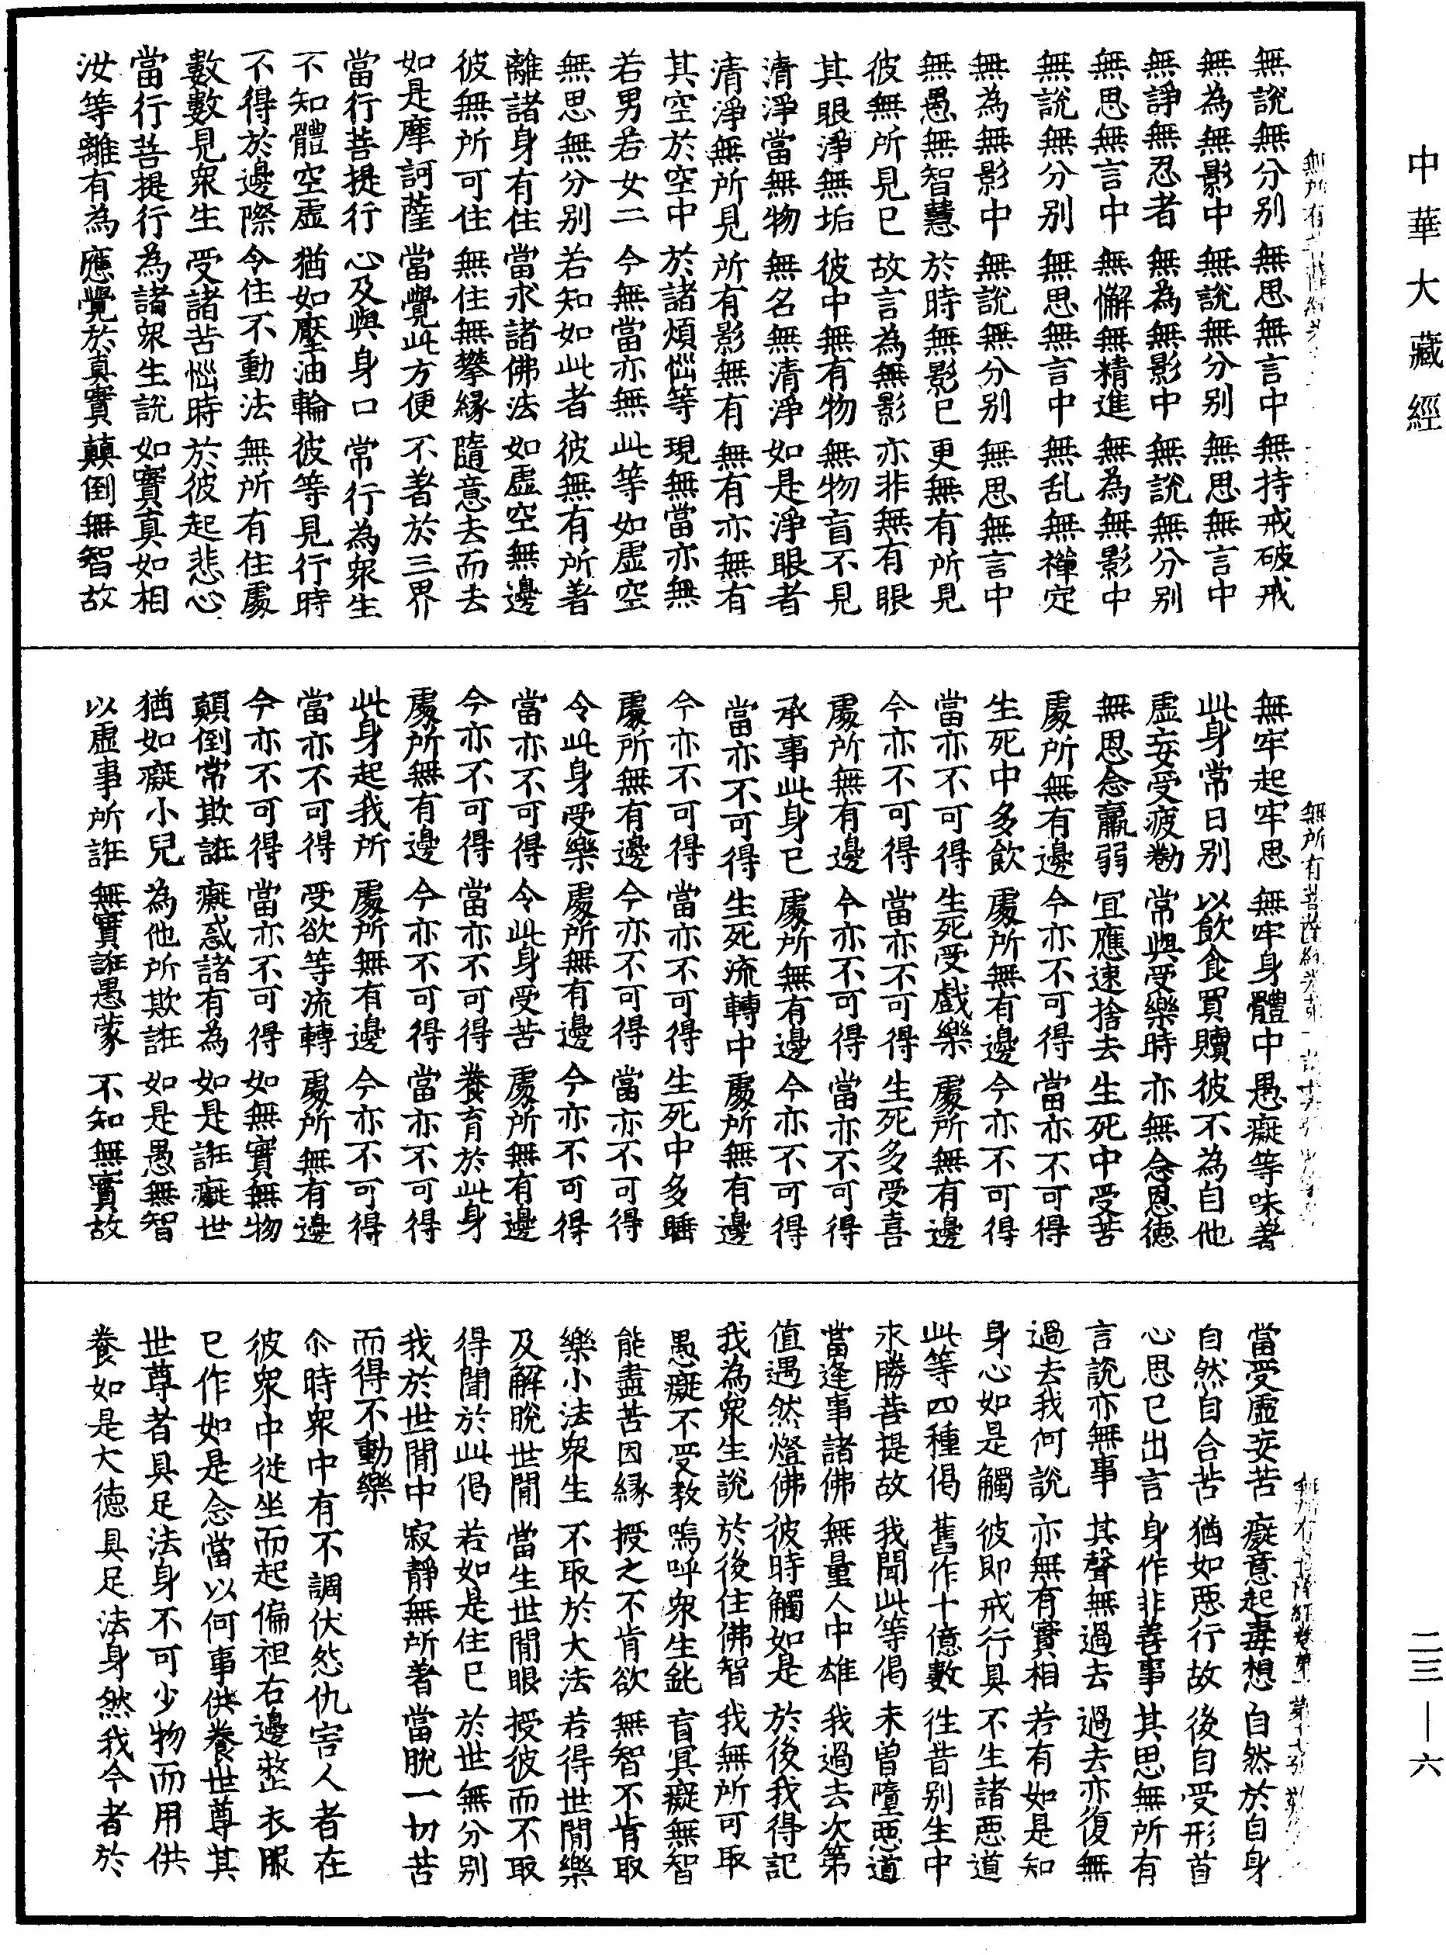 中華大藏經
無說無分別 無思無言中 無持戒破戒
無為無影中 無說無分別 無思無言中
無諍無忍者 無為無影中 無說無分別
無思無言中 無懈無精進 無為無影中
無說無分別 無思無言中 無乱無禪定
無為無影中 無說無分別 無思無言中
無愚無智慧 於時無影已 更無有所見
彼無所見已 故言為無影 亦非無有眼
其眼淨無垢 彼中無有物 無物盲不見
清淨當無物 無名無清淨 如是淨眼者
清淨無所見 所有影無有 無有亦無有
其空於空中 於諸煩惱等 現無當亦無
若男若女二 今無當亦無 此等如虛空
無思無分別 若知如此者 彼無有所著
離諸身有住 當求諸佛法 如虛空無邊
彼無所可住 無住無攀緣 隨意去而去
如是摩訶薩 當覺此方便 不著於三界
當行菩提行 心及與身口 常行為眾生
不知體空虛 猶如壓油輪 彼等見行時
不得於邊際 令住不動法 無所有住處
數數見眾生 受諸苦惱時 於彼起悲心
當行菩提行 為諸眾生說 如實真如相
汝等離有為 應覺於真實 顛倒無智故
無所有菩薩經
無牢起牢思 無牢身體中 愚癡等味著
此身常日別 以飲食買贖 彼不為自他
虛妄受疲勌 常與受樂時 亦無念恩德
無恩念羸弱 宜應速捨去 生死中受苦
處所無有邊 今亦不可得 當亦不可得
生死中多飲 處所無有邊 今亦不可得
當亦不可得 生死受戲樂 處所無有邊
今亦不可得 當亦不可得 生死多受喜
處所無有邊 今亦不可得 當亦不可得
承事此身已 處所無有邊 今亦不可得
當亦不可得 生死流轉中 處所無有邊
今亦不可得 當亦不可得 生死中多睡
處所無有邊 今亦不可得 當亦不可得
令此身受樂 處所無有邊 今亦不可得
當亦不可得 令此身受苦 處所無有邊
今亦不可得 當亦不可得 養育於此身
處所無有邊 今亦不可得 當亦不可得
此身起我所 處所無有邊 今亦不可得
當亦不可得 受欲等流轉 處所無有邊
今亦不可得 當亦不可得 如無實無物
顛倒常欺誑 癡惑諸有為 如是誑癡世
猶如癡小兒 為他所欺誑 如是愚無智
以虛事所誑 無實誑愚蒙 不知無實故
當受虛妄苦 癡意起毒想 自然於自身
自然自合苦 猶如惡行故 後自受形首
心思已出言 身作非善事 其思無所有
言說亦無事 其聲無過去 過去亦復無
過去我何說 亦無有實相 若有如是知
身心如是觸 彼即戒行具 不生諸惡道
此等四種偈 舊作十億數 往昔別生中
求勝菩提故 我聞此等偈 未曾墮惡道
當逢事諸佛 無量人中雄 我過去次第
值遇然燈佛 彼時觸如是 於後我得記
我為眾生說 於後住佛智 我無所可取
愚癡不受教 嗚呼眾生鈍 盲冥癡無智
能盡苦因緣 授之不肯欲 無智不肯取
樂小法眾生 不取於大法 若得世間樂
及解脫世間 當生世間眼 授彼而不取
得聞於此偈 若如是住已 於世無分別
我於世間中 寂靜無所著 當脫一切苦
而得不動樂
尒時眾中有不調伏怨仇害人者在
彼眾中從坐而起偏袒右邊整衣服
已作如是念當以何事供養世尊其
世尊者具足法身不可少物而用供
養如是大德具足法身然我今者於
二三—六